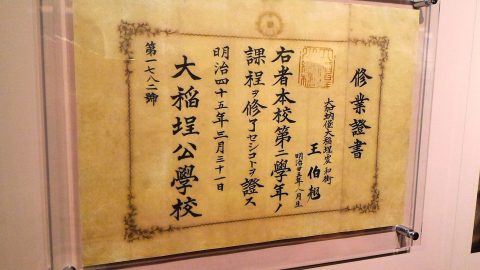 修業證書
大加蚋堡大稻埕宜和街
王伯
明治廿五年八月生
右者本校第二學年ノ
課程ヲ修了セシコトヲ證ス
明治四十五年三月三十一日
大稻埕公學校
第一七八二號